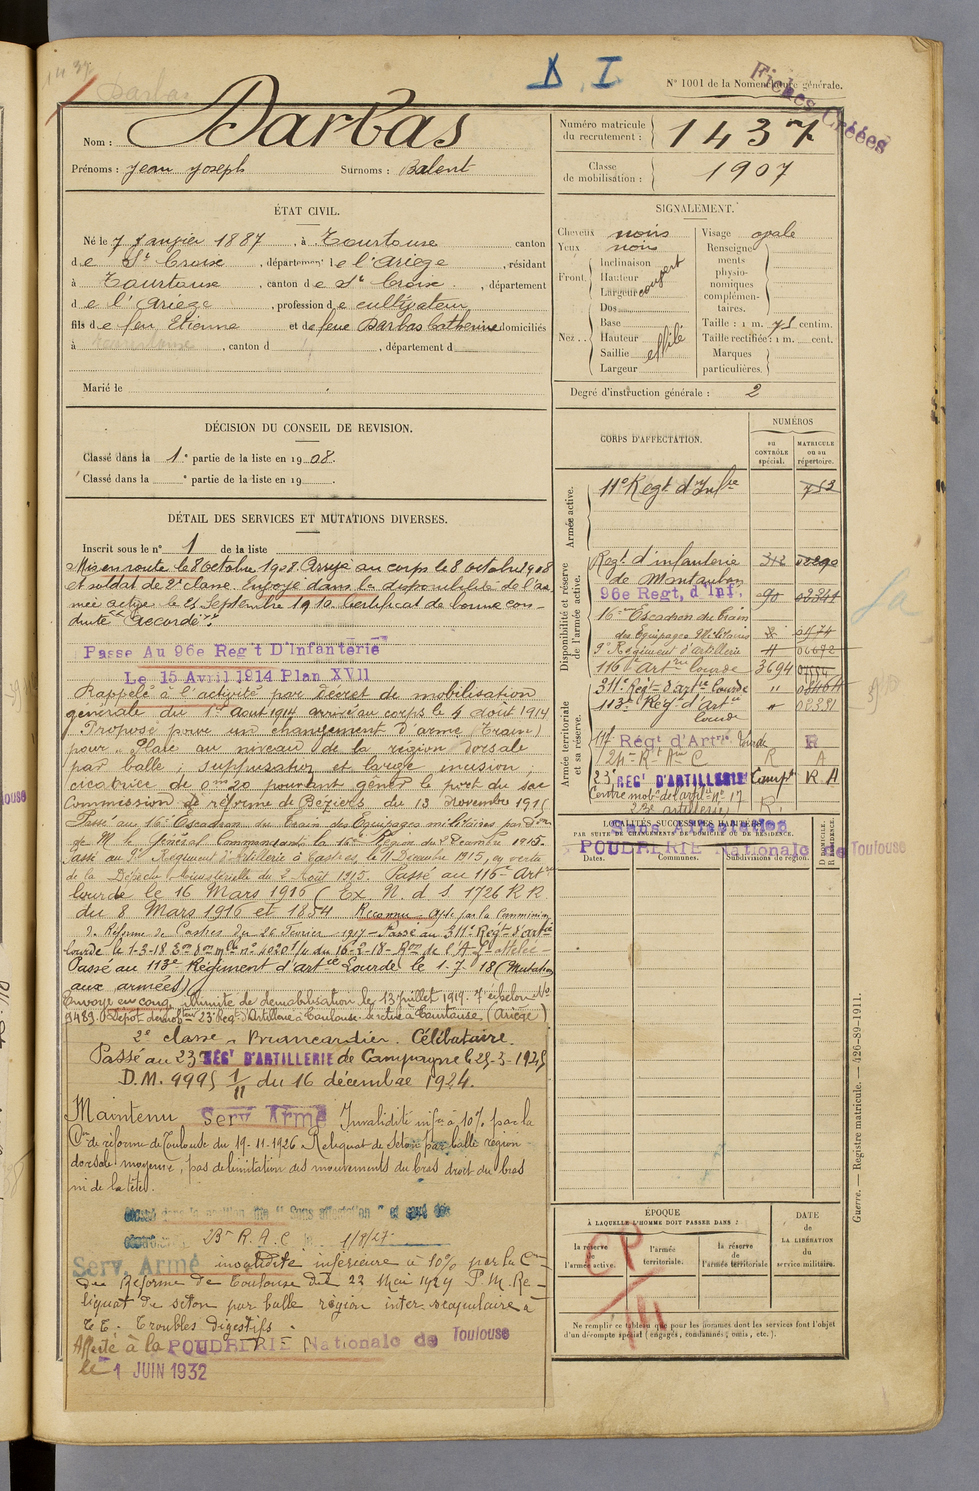 1437
Darbas
D. I
N° 1001 de la Nomenclature générale.
Fiches Créées
Nom : Darbas
Prénoms : Jean Joseph Surnoms : Balent
Numéro matricule du recrutement : 1437
Classe de mobilisation : 1907
ÉTAT CIVIL.
Né le 7 Janvier 1887, à Tourtouse canton
de St Croix, département de l'Ariège, résidant
à Tourtouse, canton de St Croix, département
de l'Ariège, profession de cultivateur
fils de feu Etienne et de feue Darbas Catherine domiciliés
à Tourtouse, canton d , département d
Marié le
SIGNALEMENT.
Cheveux noirs
Yeux noirs
Front
Inclinaison
Hauteur
Largeur
Nez
Dos
Base
Hauteur
Saillie
Largeur
effilé
Visage ovale
Renseignements physionomiques complémentaires.
Taille : 1 m. 75 centim.
Taille rectifiée : 1 m. cent.
Marques particulières.
Degré d'instruction générale : 2
DÉCISION DU CONSEIL DE REVISION.
Classé dans la 1e partie de la liste en 1908.
Classé dans la e partie de la liste en 19 .
DÉTAIL DES SERVICES ET MUTATIONS DIVERSES.
Inscrit sous le n° 1 de la liste
Mis en route le 8 octobre 1908. Arrivé au corps le 8 octobre 1908
et soldat de 2e classe. Envoyé dans la disponibilité de l'ar-
mée active le 25 Septembre 1910. Certificat de bonne con-
duite "Accordé".
Passe Au 96e Regt D'Infanterie
Le 15 Avril 1914 Plan XVII
Rappelé à l'activité par Décret de mobilisation
générale du 1er Aout 1914 arrivé au corps le 4 Août 1914
Proposé pour un changement d'arme (Train)
pour "Plaie au niveau de la région dorsale
par balle ; suppuration et large incision ;
cicatrice de 0m20 pouvant gêner le port du sac
Commission de réforme de Béziers du 13 novembre 1915
Passé au 16e Escadron du Train des Equipages militaires par Don
de M le Général Commandant la 16e Région du 2 Décembre 1915.
Passé au 9e Régiment d'Artillerie à Castres le 11 Décembre 1915, en vertu
de la Dépêche Ministérielle du 2 Août 1915. Passé au 116e Artie
lourde le 16 Mars 1916 (Ex N. d S 1726 R R.
du 8 Mars 1916 et 1854 Reconnu apte par la Commission
de Réforme de Castres du 26 Février 1917 - Passé au 311e Régt d'artie
lourde le 1-3-18
Passé au 113e Régiment d'artie Lourde le 1-7-18 (Mutation
aux armées)
Envoyé en congé illimité de démobilisation le 13 juillet 1919. 7e échelon No
9489. Dépôt démobteur 23e Regt d'Artillerie à Toulouse se retire à Tourtouse (Ariège)
2e classe - Brancardier. Célibataire.
Passé au 23e RÉGt D'ARTILLERIE de Campagne le 25-3-1925
D.M. 9995 1/11 du 16 décembre 1924.
Maintenu Serv Armé Invalidité infre à 10% par la
Con de réforme de Toulouse du 19-11-1926 Reliquat de séton par balle région
dorsale moyenne, pas de limitation des mouvements du bras droit du bras
ni de la tête.
classé dans la position dite "Sans affectation"
23e R.A.C le 1/8/27
Serv. Armé invalidité inférieure à 10% par la Con
de Réforme de Toulouse du 22 Mai 1929 P.M. Re-
liquat de séton par balle région inter scapulaire
Troubles digestifs.
Affecté à la POUDRERIE Nationale de Toulouse
le 1 JUIN 1932
CORPS D'AFFECTATION.
NUMÉROS
au contrôle spécial.
matricule ou au répertoire.
Armée active.
11e Regt d'Infie 752
Disponibilité et réserve de l'armée active.
Regt d'infanterie de Montauban 312
96e Regt, d'Inf. 90 02341
16e Escadron du Train
des Equipages Militaires
9e Régiment d'artillerie
116e Artie lourde 3694
311e Régt d'artie lourde "
113e Rég d'Artie lourde "
Armée territoriale et sa réserve.
117 Régt d'Artie lourde R
R A
23e REGt D'ARTILLERIE Campe R A
Centre mobr de l'artie n° 17 R.
23e artillerie
Sans Affectation
POUDRERIE Nationale de Toulouse
LOCALITÉS SUCCESSIVES HABITÉES
PAR SUITE DE CHANGEMENTS DE DOMICILE OU DE RÉSIDENCE.
Dates. Communes. Subdivisions de région. D. DOMICILE. R. RÉSIDENCE.
ÉPOQUE
À LAQUELLE L'HOMME DOIT PASSER DANS :
la réserve de l'armée active.
l'armée territoriale.
la réserve de l'armée territoriale.
DATE de LA LIBÉRATION du service militaire.
CP
Ne remplir ce tableau que pour les hommes dont les services font l'objet
d'un décompte spécial (engagés, condamnés, omis, etc.).
Guerre. — Registre matricule. — 426-89-1911.